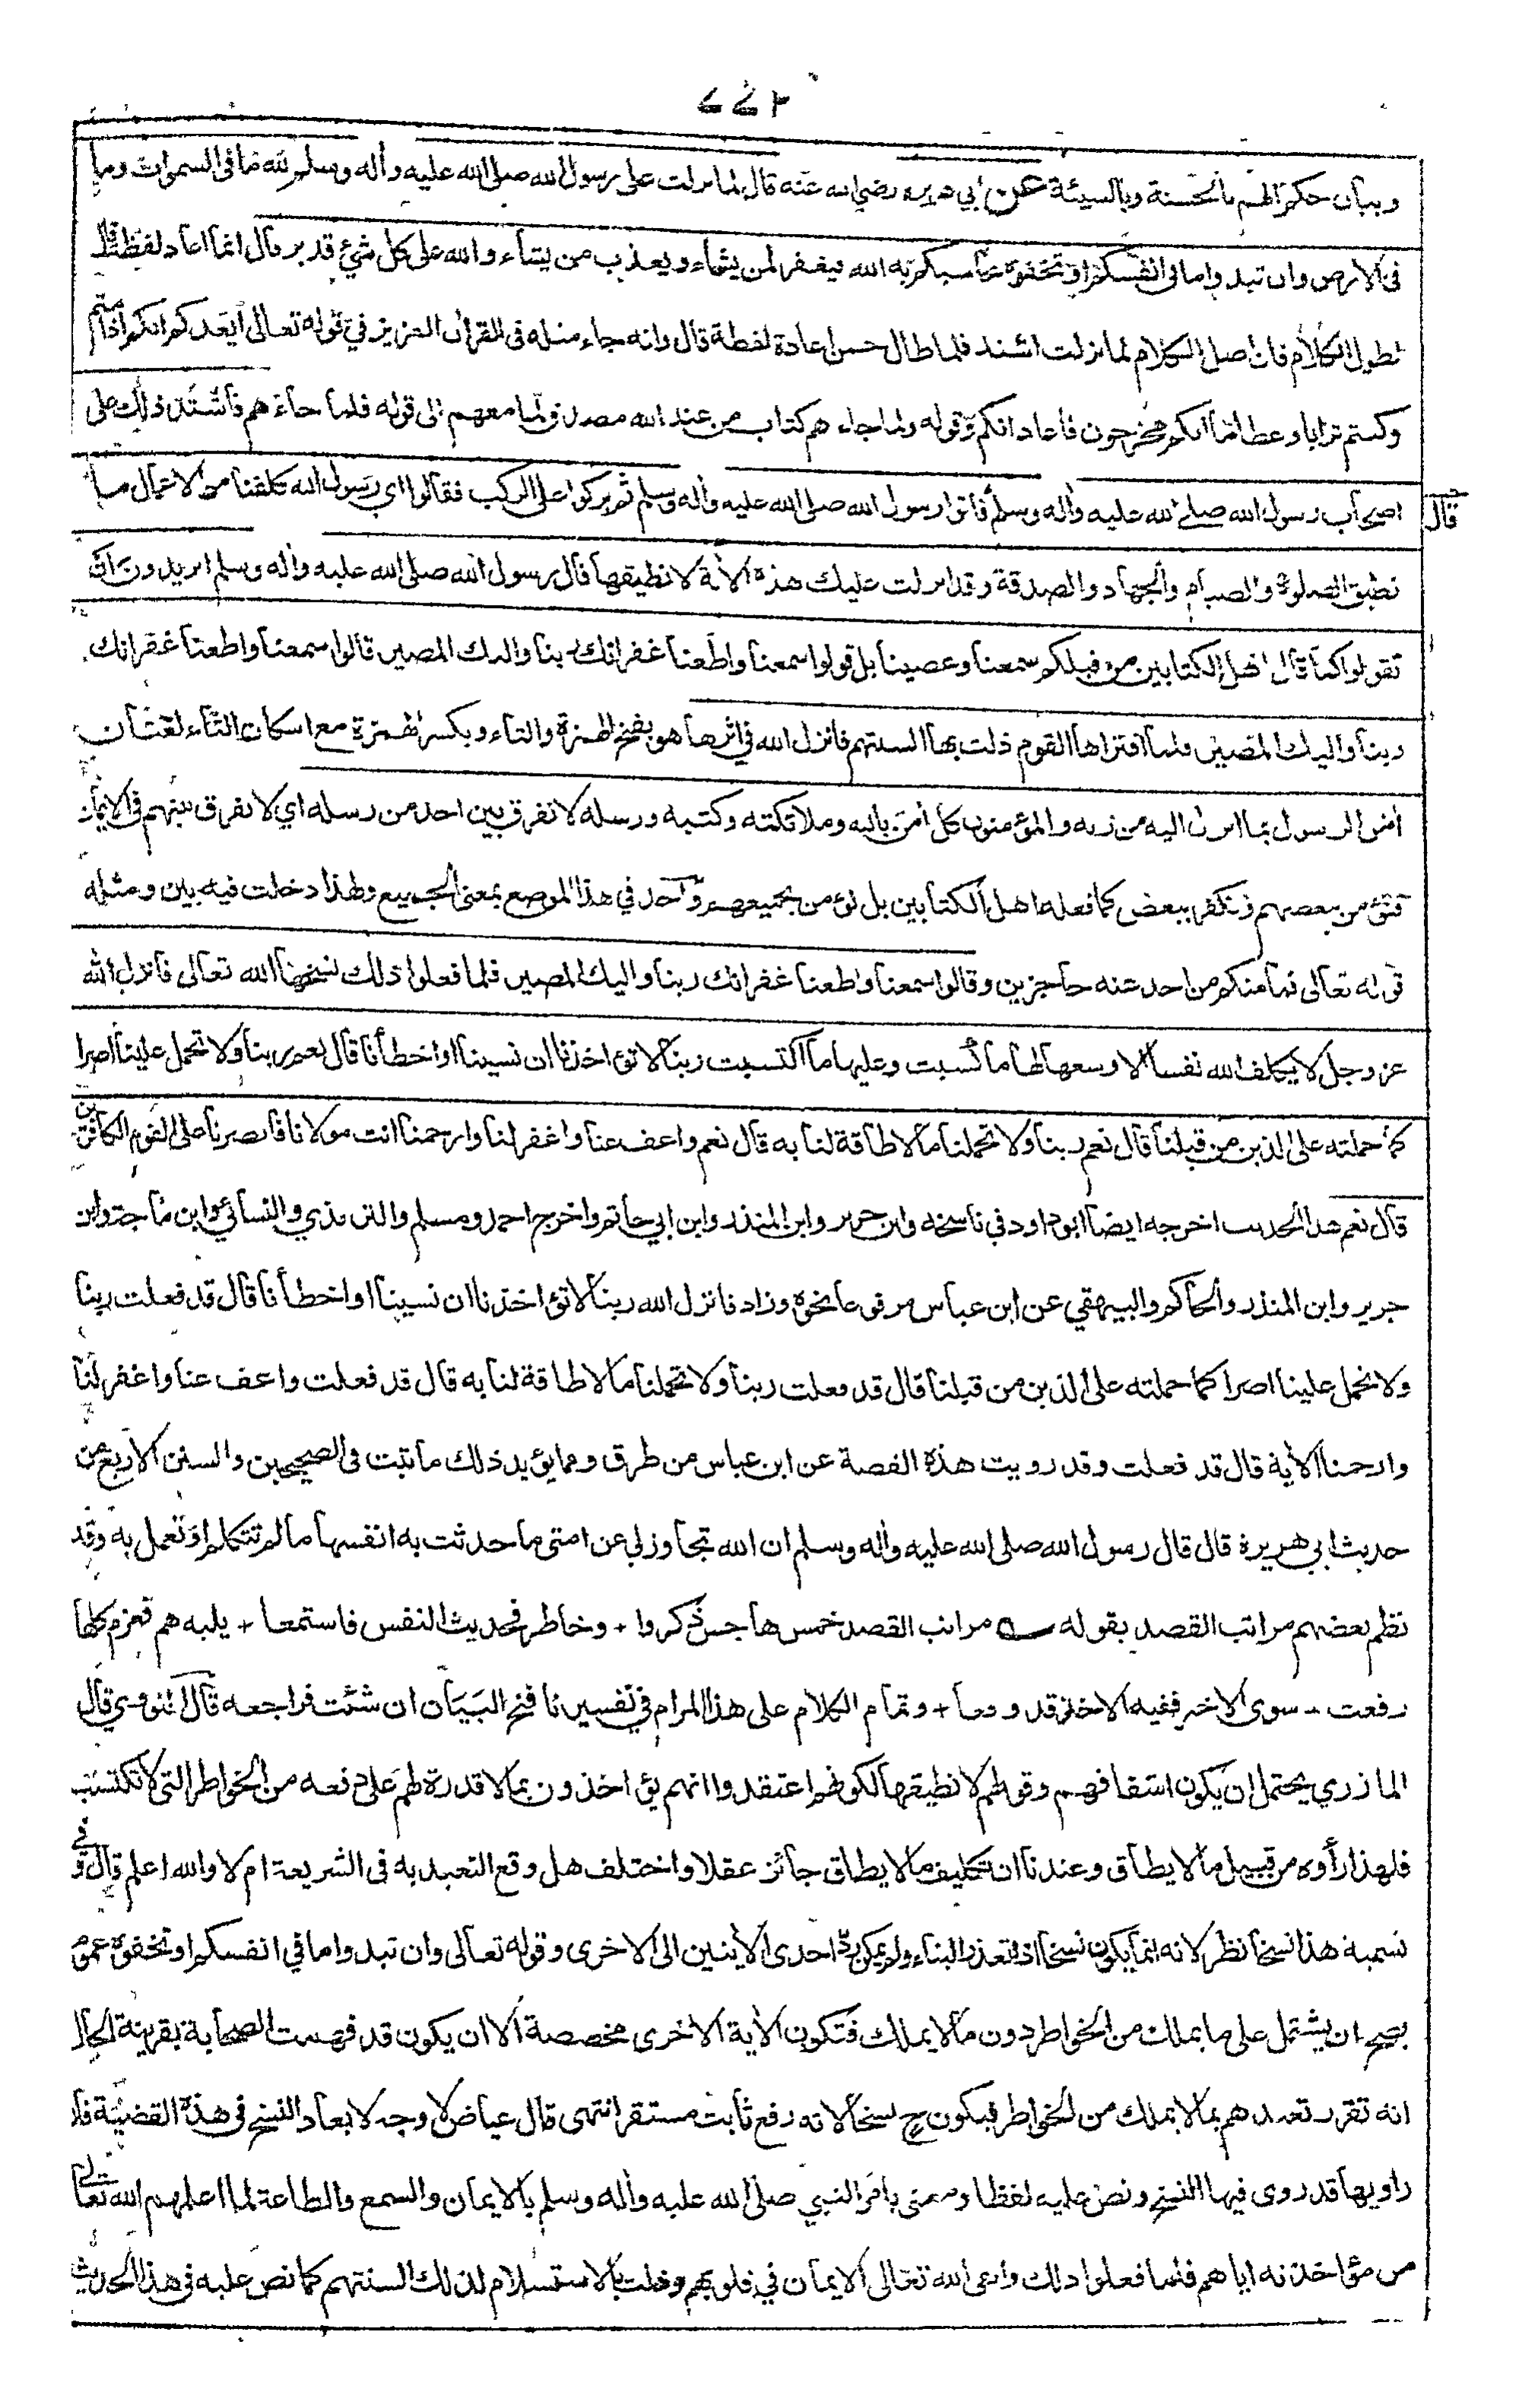 وبيان حكم الهم بالحسنة وبالسيئة عن ابي هريرة رضي الله عنه قال لما نزلت على رسول الله صلى الله عليه وأله وسلم لله ما فى السموات وما
فى الارض وان تبدوا ما فى انفسكم او تخفوه يحاسبكم به الله فيغفر لمن يشاء ويعذب من يشاء والله على كل شئ قدير قال انما اعاد لفظة قال
لطول الكلام فان اصل الكلام لما نزلت اشتد فلما طال حسن اعادة لفظة قال وانه جاء مثله فى القرأن العزيز في قوله تعالى أيعدكم انكم اذا متم
وكنتم ترابا وعظاما انكم مخرجون فأعاد انكم وقوله ولما جاءهم كتاب من عند الله مصدق لما معهم الى قوله فلما جاءهم فأشتد ذلك على
قال اصحاب رسول الله صلى الله عليه وأله وسلم فأتوا رسول الله صلى الله عليه وأله وسلم ثم بركوا على الركب فقالوا اي رسول الله كلفنا من الاعمال ما
نطيق الصلوة والصيام والجهاد والصدقة وقد انزلت عليك هذه الأية لا نطيقها قال رسول الله صلى الله عليه وأله وسلم اتريدون ان
تقولوا كما قال اهل الكتابين من قبلكم سمعنا وعصينا بل قولوا سمعنا واطعنا غفرانك ربنا واليك المصير قالوا سمعنا واطعنا غفرانك
ربنا واليك المصير فلما اقترأها القوم ذلت بها السنتهم فأنزل الله في اثرها هو بفتح الهمزة والثاء وبكسر الهمزة مع اسكان الثاء لغتان
أمن الرسول بما انزل اليه من ربه والمؤمنون كل أمن بالله وملائكته وكتبه ورسله لا نفرق بين احد من رسله اي لا نفرق بينهم فى الايمان
فنؤمن ببعضهم ونكفر ببعض كما فعله اهل الكتابين بل نؤمن بجميعهم واحد في هذا الموضع بمعنى الجميع ولهذا دخلت فيه بين ومثله
قوله تعالى فما منكم من احد عنه حاجزين وقالوا سمعنا واطعنا غفرانك ربنا واليك المصير فلما فعلوا ذلك نسخها الله تعالى فانزل الله
عز وجل لا يكلف الله نفسا الا وسعها لها ما كسبت وعليها ما اكتسبت ربنا لا تؤاخذنا ان نسينا او اخطأنا قال نعم ربنا ولا تحمل علينا اصرا
كما حملته على الذين من قبلنا قال نعم ربنا ولا تحملنا ما لا طاقة لنا به قال نعم واعف عنا واغفر لنا وارحمنا انت مولانا فانصرنا على القوم الكافرين
قال نعم هذا الحديث اخرجه ايضا ابو داود في ناسخه وابن جرير وابن المنذر وابن ابي حاتم واخرج احمد ومسلم والترمذي والنسائي وابن ماجة وابن
جرير وابن المنذر والحاكم والبيهقي عن ابن عباس مرفوعا نحوه وزاد فانزل الله ربنا لا تؤاخذنا ان نسينا او اخطأنا قال قد فعلت ربنا
ولا تحمل علينا اصرا كما حملته على الذين من قبلنا قال قد فعلت ربنا ولا تحملنا ما لا طاقة لنا به قال قد فعلت واعف عنا واغفر لنا
وارحمنا الأية قال قد فعلت وقد رويت هذه القصة عن ابن عباس من طرق ومما يؤيد ذلك ما ثبت فى الصحيحين والسنن الاربع من
حديث ابي هريرة قال قال رسول الله صلى الله عليه وأله وسلم ان الله تجاوز لي عن امتى ما حدثت به انفسها ما لم تتكلم او تعمل به وقد
نظم بعضهم مراتب القصد بقوله مراتب القصد خمس هاجس ذكروا + وخاطر فحديث النفس فاستمعا + يليه هم فعزم كلها
رفعت - سوى الاخير ففيه الاخذ قد وقعا + وتمام الكلام على هذا المرام في تفسيرنا فتح البيان ان شئت فراجعه قال النووي قال
المازري يحتمل ان يكون اشفاقهم وقولهم لا نطيقها لكونهم اعتقدوا انهم يؤاخذون بما لا قدرة لهم على دفعه من الخواطر التى لا تكتسب
فلهذا رأوه من قبيل ما لا يطاق وعندنا ان تكليف ما لا يطاق جائز عقلا واختلف هل وقع التعبد به فى الشريعة ام لا والله اعلم قال وفي
تسمية هذا نسخا نظر لانه انما يكون نسخا اذا تعذر البناء ولم يمكن رد احدى الأيتين الى الاخرى وقوله تعالى وان تبدوا ما في انفسكم او تخفوه عموم
يصح ان يشتمل على ما يملك من الخواطر دون ما لا يملك فتكون الأية الاخرى مخصصة الا ان يكون قد فهمت الصحابة بقرينة الحال
انه تقرر تعبدهم بما لا يملك من الخواطر فيكون ح نسخا لانه رفع ثابت مستقر انتهى قال عياض لا وجه لابعاد النسخ فى هذه القضية فان
راويها قد روى فيها النسخ ونص عليه لفظا ومعنى بامر النبي صلى الله عليه وأله وسلم بالايمان والسمع والطاعة لما اعلمهم الله تعالى
من مؤاخذته اياهم فلما فعلوا ذلك والقى الله تعالى الايمان في قلوبهم وذلت بالاستسلام لذلك السنتهم كما نص عليه فى هذا الحديث